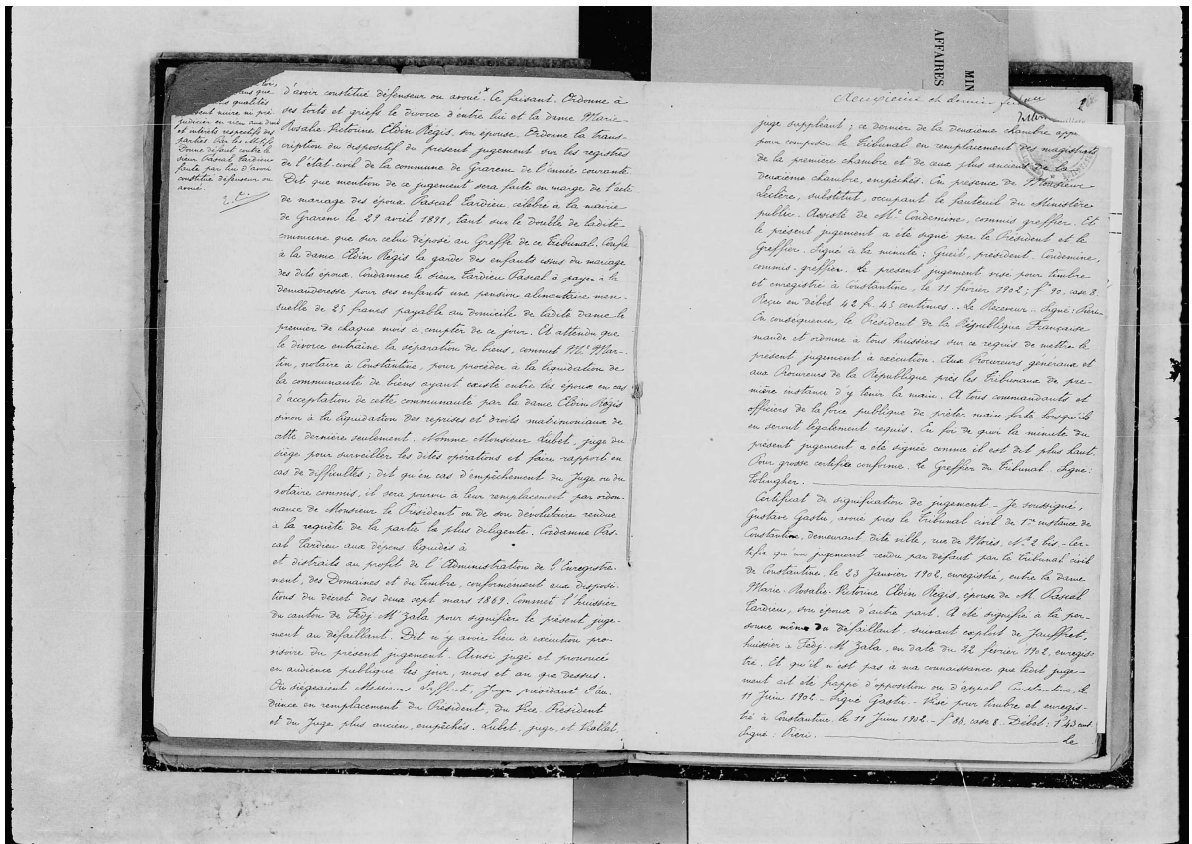 MIN
AFFAIRES
que
qualités
nuire ni pré-
judicier en rien aux droits
et intérêts respectifs des
parties. Par les Motifs
Donne défaut contre le
sieur Pascal Tardieu
faute par lui d'avoir
constitué défenseur ou
avoué.
d'avoir constitué défenseur ou avoué. Ce faisant. Ordonne à
ses torts et griefs le divorce d'entre lui et la dame Marie
Rosalie Victorine Eldin Régis, son épouse. Ordonne la trans-
cription du dispositif du présent jugement sur les registres
de l'état civil de la commune de Grarem de l'année courante.
Dit que mention de ce jugement sera faite en marge de l'acte
de mariage des époux Pascal Tardieu, célébré à la mairie
de Grarem le 27 avril 1891, tant sur le double de ladite
commune que sur celui déposé au Greffe de ce Tribunal. Confie
à la dame Eldin Régis la garde des enfants issus du mariage
des dits époux. Condamne le sieur Tardieu Pascal à payer à la
demanderesse pour ses enfants une pension alimentaire men-
suelle de 25 francs payable au domicile de ladite dame le
premier de chaque mois à compter de ce jour. Et attendu que
le divorce entraîne la séparation de biens, commet Me Mar-
tin, notaire à Constantine, pour procéder à la liquidation de
la communauté de biens ayant existé entre les époux en cas
d'acceptation de cette communauté par la dame Eldin Régis
sinon à la liquidation des reprises et droits matrimoniaux de
cette dernière seulement. Nomme Monsieur Lubet, juge du
siège pour surveiller les dites opérations et faire rapport en
cas de difficultés ; dit qu'en cas d'empêchement du Juge ou du
notaire commis, il sera pourvu à leur remplacement par ordon-
nance de Monsieur le Président ou de son dévolutaire rendue
à la requête de la partie la plus diligente. Condamne Pas-
cal Tardieu aux dépens liquidés à
et distraits au profit de l'Administration de l'Enregistre-
ment, des Domaines et du Timbre, conformément aux disposi-
tions du décret des deux sept mars 1869. Commet l'huissier
du canton de Fedj. M'Zala pour signifier le présent juge-
ment au défaillant. Dit n'y avoir lieu à exécution pro-
visoire du présent jugement. Ainsi jugé et prononcé
en audience publique les jour, mois et an que dessus.
Où siégeaient Messieurs Juge présidant l'au-
dience en remplacement du Président, du Vice Président
et du Juge plus ancien, empêchés. Lubet, juge, et Viallat
et dernier
juge suppléant ; ce dernier de la deuxième chambre appelé
pour composer le Tribunal en remplacement des magistrats
de la première chambre et de ceux plus anciens de la
deuxième chambre, empêchés. En présence de Monsieur
Leclère, substitut, occupant le fauteuil du Ministère
public. Assisté de Me Condemine, commis greffier. Et
le présent jugement a été signé par le Président et le
Greffier. Signé à la minute : Gueit, président. Condemine,
commis-greffier. Le présent jugement visé pour timbre
et enregistré à Constantine, le 11 février 1902 ; f° 90, case 8.
Reçu en Débet 42 fr. 45 centimes. Le Receveur. Signé : Piéri.
En conséquence, le Président de la République Française
mande et ordonne à tous huissiers sur ce requis de mettre le
présent jugement à exécution. Aux Procureurs généraux et
aux Procureurs de la République près les Tribunaux de pre-
mière instance d'y tenir la main. A tous commandants et
officiers de la force publique de prêter main forte lorsqu'ils
en seront légalement requis. En foi de quoi la minute du
présent jugement a été signée comme il est dit plus haut.
Pour grosse certifiée conforme. Le Greffier du Tribunal. Signé :
Certificat de signification de jugement. Je soussigné,
Gustave Gastu, avoué près le Tribunal civil de 1re instance de
Constantine, demeurant dite ville, rue de Morès, N° 2 bis. Cer-
tifie qu'un jugement rendu par défaut par le Tribunal civil
de Constantine, le 23 Janvier 1902, enregistré, entre la dame
Marie-Rosalie-Victorine Eldin Régis, épouse de M. Pascal
Tardieu, son époux d'autre part. A été signifié à la per-
sonne même du défaillant, suivant exploit de Jauffret,
huissier à Fedj. M'Zala, en date du 22 février 1902, enregis-
tré. Et qu'il n'est pas à ma connaissance que ledit juge-
ment ait été frappé d'opposition ou d'appel. Constantine, le
11 Juin 1902. Signé Gastu. Visé pour timbre et enregis-
tré à Constantine, le 11 Juin 1902. f° 88, case 8. Débet : 1f 43 cent
Signé : Piéri.
Le